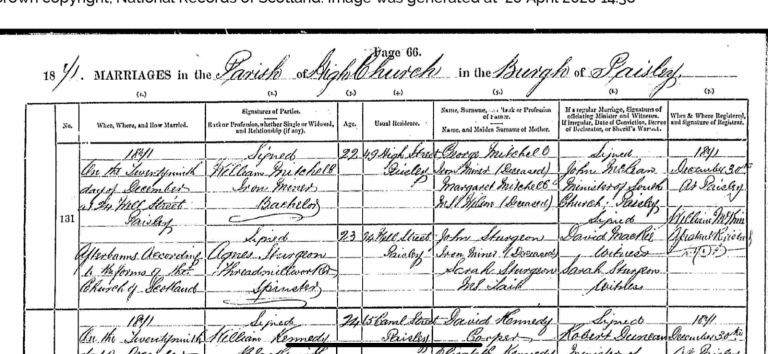 rown copyright, National Records of Scotland. Image was generated at 20 April 2020 14:38
Page 66.
1871. MARRIAGES in the Parish of High Church in the Burgh of Paisley
(1.) (2.) (3.) (4.) (5.) (6.) (7.)
No.
When, Where, and How Married.
Signatures of Parties.
Rank or Profession, whether Single or Widowed, and Relationship (if any).
Age.
Usual Residence.
Name, Surname, and Rank or Profession of Father.
Name, and Maiden Surname of Mother.
If a regular Marriage, Signature of officiating Minister and Witnesses.
If Irregular, Date of Conviction, Decree of Declarator, or Sheriff's Warrant.
When & Where Registered, and Signature of Registrar.
131
1871
On the Twentyninth
day of December
at 24 Well Street
Paisley
After banns According
to the forms of the
Church of Scotland
Signed
William Mitchell
Iron Miner
Bachelor
Signed
Agnes Sturgeon
Threadmillworker
Spinster
22
23
49 High Street
Paisley
24 Well Street
Paisley
George Mitchell
Iron Miner (Deceased)
Margaret Mitchell
(Deceased)
John Sturgeon
Iron Miner (Deceased)
Sarah Sturgeon
MS Tait
Signed
John McLean
Minister of South
Church, Paisley
Signed
David Mackie
Witness
Sarah Sturgeon
Witness
1871
December 30th
At Paisley
William
Assistant Registrar
1871
On the Twentyninth
Signed
William Kennedy
24
15 Canal Street
Paisley
David Kennedy
Signed
Robert Duncan
Minister of
1871
December 30th
At Paisley